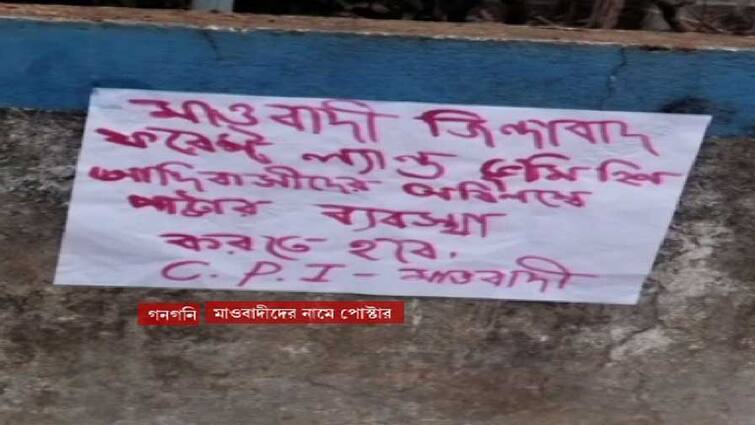 মাওবাদী জিন্দাবাদ
ফরেস্ট ল্যান্ড ভূমিহীন
আদিবাসীদের অবিলম্বে
পাট্টার ব্যবস্থা
করতে হবে.
C. P. I - মাওবাদী
গনগনি মাওবাদীদের নামে পোস্টার